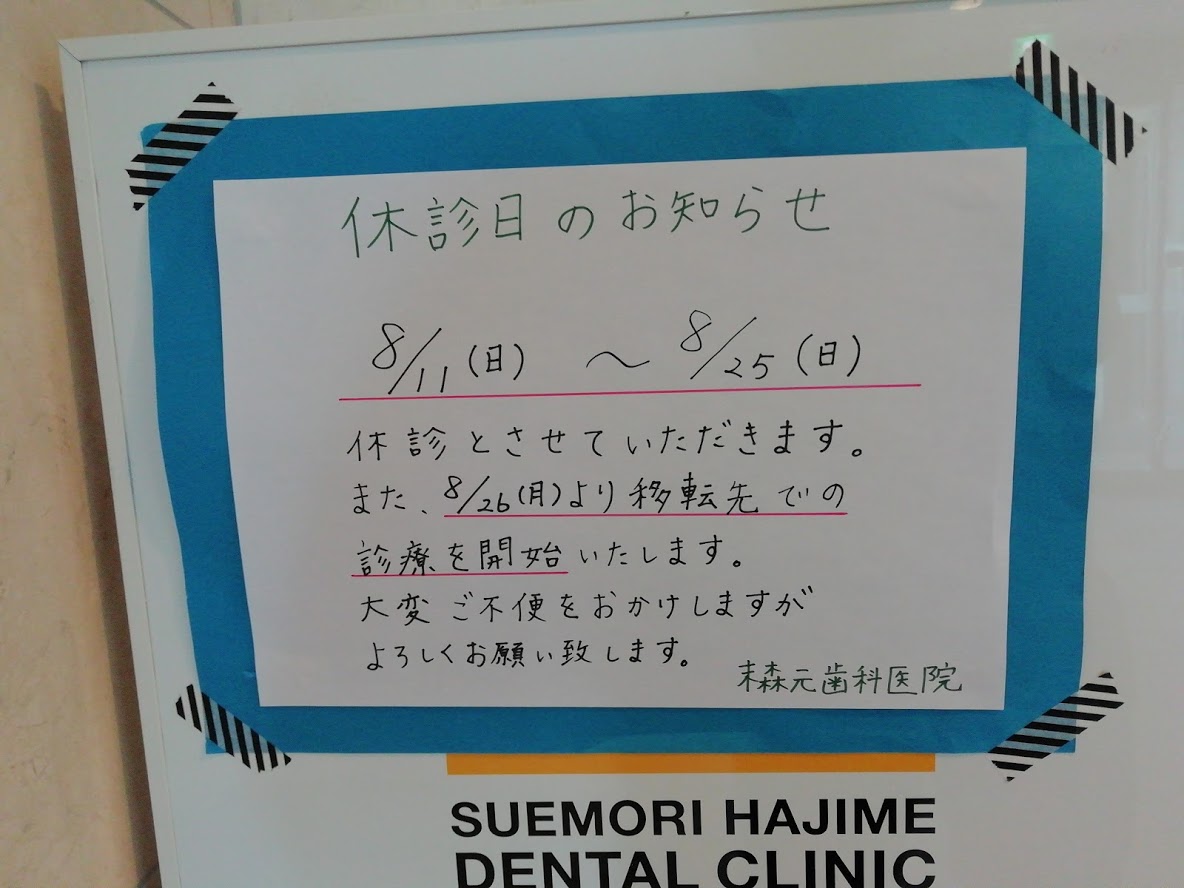 休診日のお知らせ
8/11(日) ～ 8/25(日)
休診とさせていただきます。
また、8/26(月)より移転先での
診療を開始いたします。
大変ご不便をおかけしますが
よろしくお願い致します。
末森元歯科医院
SUEMORI HAJIME
DENTAL CLINIC